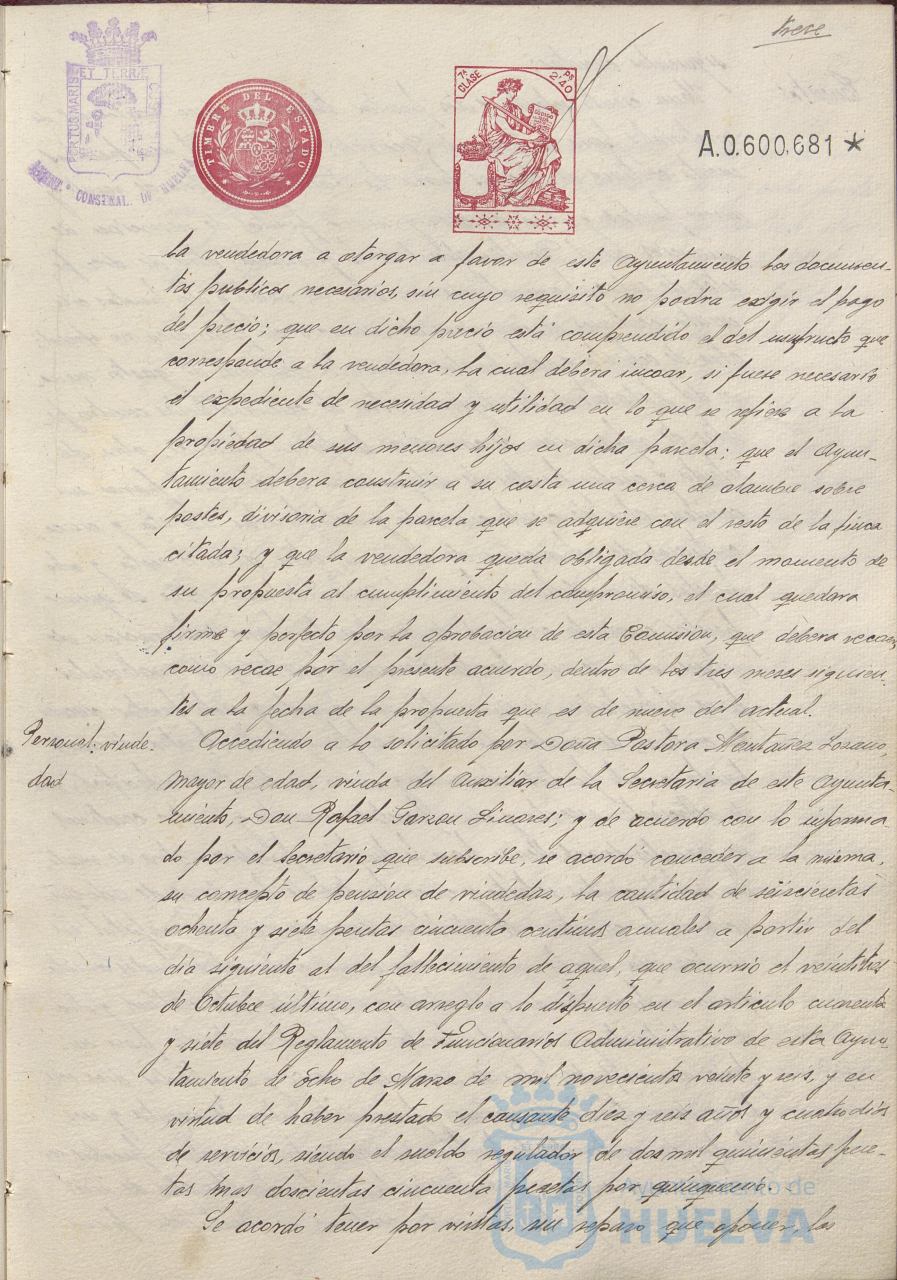 trece
PORTUS MARIS ET TERRÆ CUSTODIA
TIMBRE DEL ESTADO
7ª CLASE 2'40 PS
A.0.600.681 *
la vendedora a otorgar a favor de este Ayuntamiento los documen-
tos publicos necesarios, sin cuyo requisito no podra exigir el pago
del precio; que en dicho precio está comprendido el del usufructo que
corresponde a la vendedora, la cual deberá incoar, si fuese necesario
el expediente de necesidad y utilidad en lo que se refiere a la
propiedad de sus menores hijos en dicha parcela; que el Ayun-
tamiento debera construir a su costa una cerca de alambre sobre
postes, divisoria de la parcela que se adquiere con el resto de la finca
citada; y que la vendedora queda obligada desde el momento de
su propuesta al cumplimiento del compromiso, el cual quedara
firme y perfecto por la aprobacion de esta Comision, que debera recaer,
como recae por el presente acuerdo, dentro de los tres meses siguien-
tes a la fecha de la propuesta que es de nueve del actual.
Personal: viude-
dad
Accediendo a lo solicitado por Doña Pastora Montañez Lozano,
mayor de edad, viuda del Auxiliar de la Secretaria de este Ayunta-
miento, Don Rafael Garzon Linares; y de acuerdo con lo informa-
do por el Secretario que subscribe, se acordó conceder a la misma,
en concepto de pension de viudedaz, la cantidad de seiscientas
ochenta y siete pesetas cincuenta centimos anuales a partir del
día siguiente al del fallecimiento de aquel, que ocurrio el veintitres
de Octubre último, con arreglo a lo dispuesto en el articulo cuarenta
y siete del Reglamento de Funcionarios Administrativo de esta Ayun-
tamiento de ocho de Marzo de mil novecientos veinte y seis, y en
virtud de haber prestado el causante diez y seis años y cuatro días
de servicios, siendo el sueldo regulador de dos mil quinientas pese-
tas mas doscientas cincuenta pesetas por quinquenio.
Se acordó tener por vistas, sin reparo que oponer, las
Ayuntamiento de
HUELVA